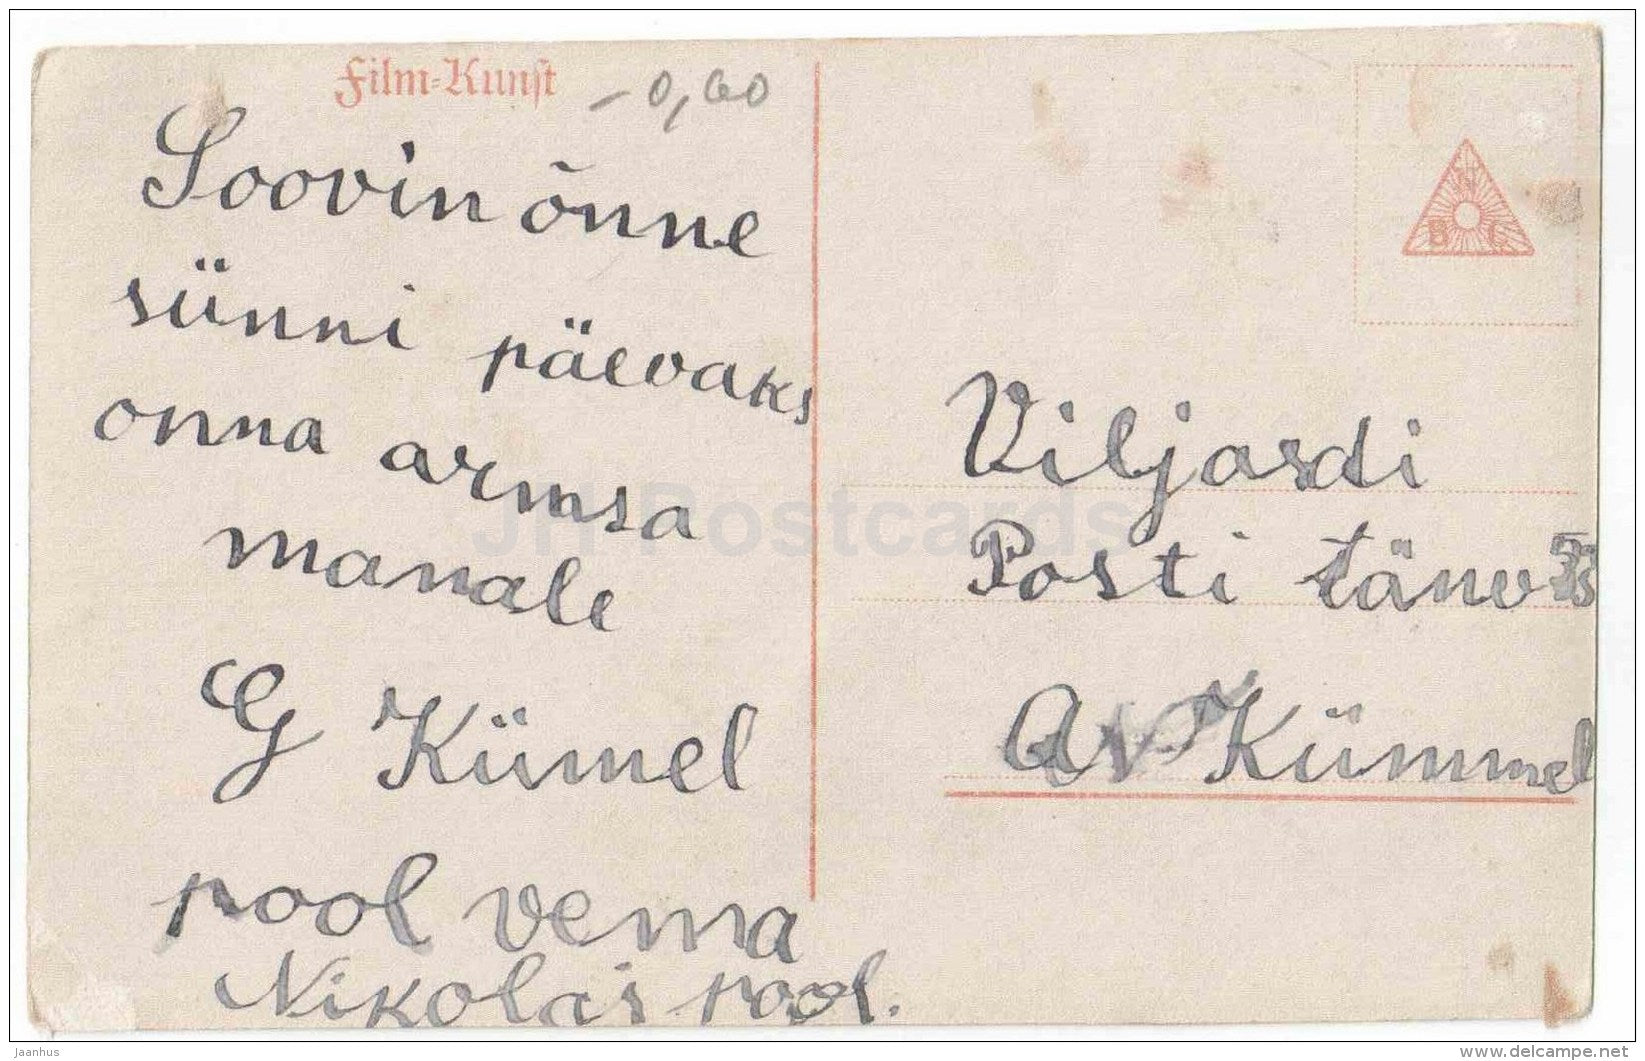 Film-Kunst
-0,60
Soovin õnne
sünni päevaks
onna armsa
manale
G Kümel
pool vema
Nikolai pool.
N
B G
Viljasdi
Posti tänv
A Kümmel
JH Postcards
jaanhus
www.delcampe.net